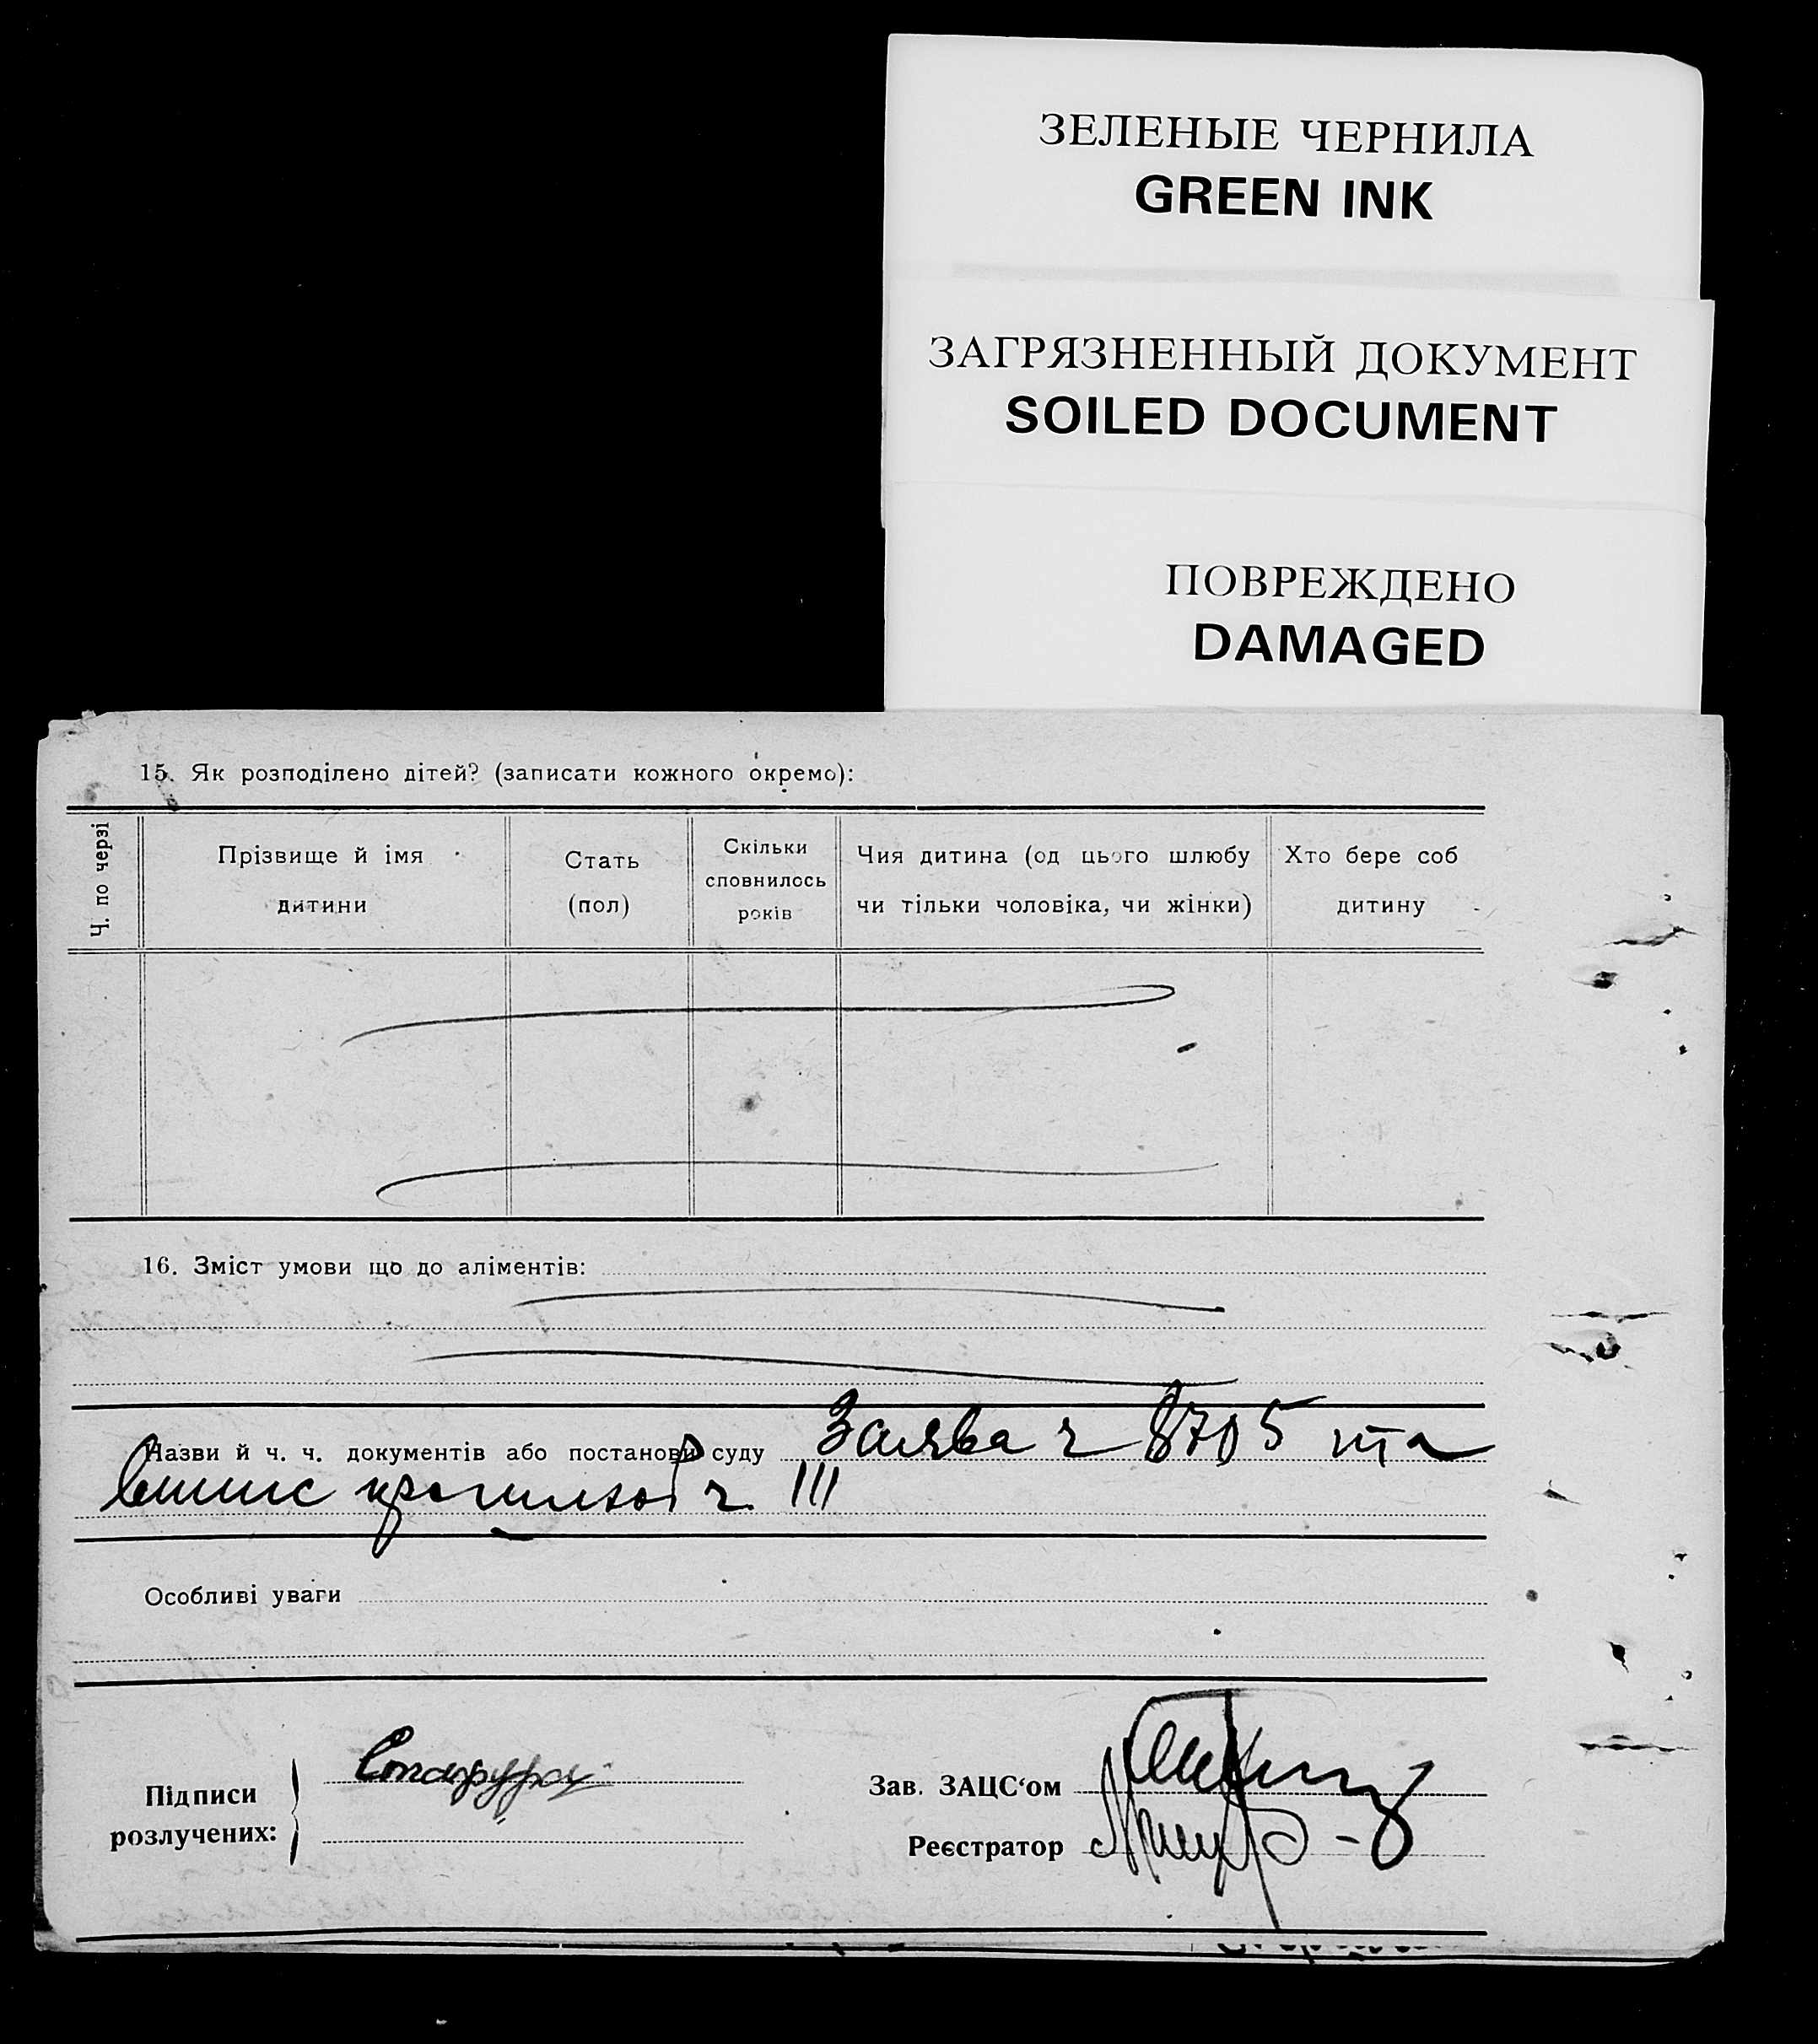 ЗЕЛЕНЫЕ ЧЕРНИЛА
GREEN INK
ЗАГРЯЗНЕННЫЙ ДОКУМЕНТ
SOILED DOCUMENT
ПОВРЕЖДЕНО
DAMAGED
15. Як розподілено дітей? (записати кожного окремо):
Ч. по черзі
Прізвище й імя
дитини
Стать
(пол)
Скільки
сповнилось
років
Чия дитина (од цього шлюбу
чи тільки чоловіка, чи жінки)
Хто бере соб
дитину
16. Зміст умови що до аліментів:
Назви й ч. ч. документів або постанови суду Заява ч 8705 та
ч. III
Особливі уваги
Підписи
розлучених:
Зав. ЗАЦС'ом
Реєстратор